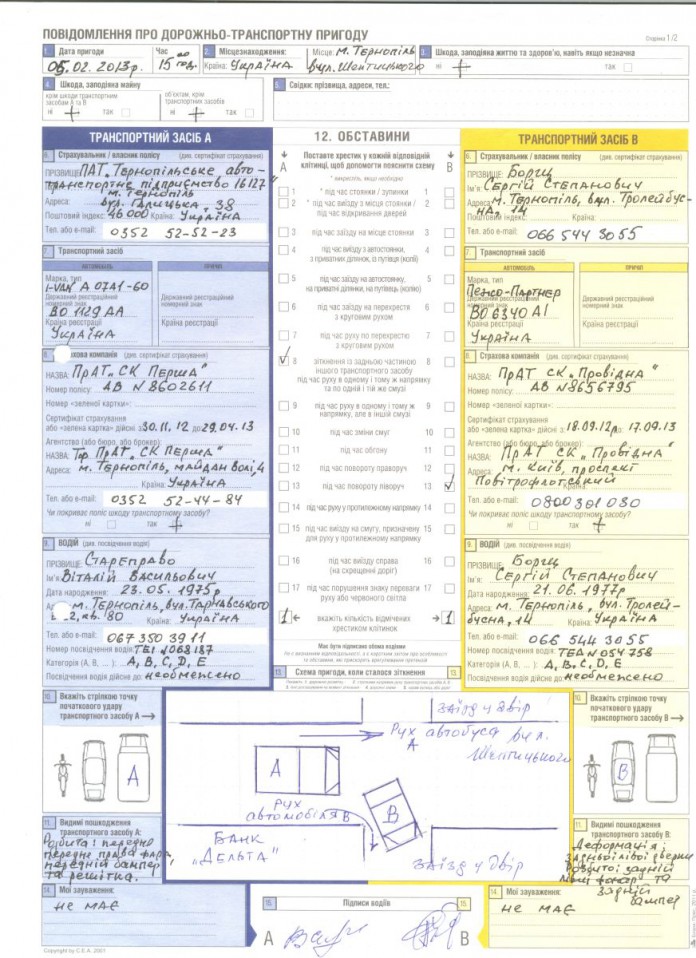 ПОВІДОМЛЕННЯ ПРО ДОРОЖНЬО-ТРАНСПОРТНУ ПРИГОДУ
Сторінка 1/2
1. Дата пригоди
05.02.2013р
Час
15 год. 00
2. Місцезнаходження:
Країна: Україна
Місце: м. Тернопіль
вул. Шептицького
3. Шкода, заподіяна життю та здоров'ю, навіть якщо незначна
ні + так
4. Шкода, заподіяна майну
крім шкоди транспортним засобам А та В
ні + так
об'єктам, крім транспортних засобів
ні + так
5. Свідки: прізвища, адреси, тел.:
ТРАНСПОРТНИЙ ЗАСІБ А
6. Страхувальник / власник полісу (див. сертифікат страхування)
ПРІЗВИЩЕ: ПАТ "Тернопільське авто-
транспортне підприємство 16127"
м. Тернопіль
Адреса: вул. Галицька, 38
Поштовий індекс: 46000 Країна: Україна
Тел. або e-mail: 0352 52-52-23
7. Транспортний засіб
АВТОМОБІЛЬ
ПРИЧІП
Марка, тип
I-VAN A 07A1-60
Державний реєстраційний номерний знак
ВО 1129 АА
Країна реєстрації
Україна
Державний реєстраційний номерний знак
Країна реєстрації
8. Страхова компанія (див. сертифікат страхування)
НАЗВА: ПрАТ "СК Перша"
Номер полісу: АВ N 8602611
Номер «зеленої картки»:
Сертифікат страхування
або «зелена картка» дійсні з 30.11.12 до 29.04.13
Агентство (або бюро, або брокер):
НАЗВА: ПрАТ "СК Перша"
Адреса: м. Тернопіль, майдан Волі, 4
Країна: Україна
Тел. або e-mail: 0352 52-44-84
Чи покриває поліс шкоду транспортному засобу?
ні так +
9. ВОДІЙ (див. посвідчення водія)
ПРІЗВИЩЕ: Стареправо
Ім'я: Віталій Васильович
Дата народження: 23.05.1975р
м. Тернопіль, вул. Тарнавського
кв. 80 Країна: Україна
Тел. або e-mail: 067 350 39 11
Номер посвідчення водія: ТЕІ N 068187
Категорія (А, В, ... ): А, В, С, D, Е
Посвідчення водія дійсне до: необмежено
10. Вкажіть стрілкою точку початкового удару транспортного засобу А
A
11. Видимі пошкодження транспортного засобу А:
передня права фара,
передній бампер
та решітка.
14. Мої зауваження:
не має
12. ОБСТАВИНИ
А
В
Поставте хрестик у кожній відповідній клітинці, щоб допомогти пояснити схему
* викресліть, якщо необхідно
1 * під час стоянки / зупинки 1
2 * під час виїзду з місця стоянки / під час відкривання дверей 2
3 під час заїзду на місце стоянки 3
4 під час виїзду з автостоянки, з приватних ділянок, із путівця (колії) 4
5 під час заїзду на автостоянку, на приватні ділянки, на путівець (колію) 5
6 під час заїзду на перехрестя з круговим рухом 6
7 під час руху по перехрестю з круговим рухом 7
8 зіткнення із задньою частиною іншого транспортного засобу під час руху в одному і тому ж напрямку та по одній і тій же смузі 8
9 під час руху в одному і тому ж напрямку, але в іншій смузі 9
10 під час зміни смуг 10
11 під час обгону 11
12 під час повороту праворуч 12
13 під час повороту ліворуч 13
14 під час руху у протилежному напрямку 14
15 під час виїзду на смугу, призначену для руху у протилежному напрямку 15
16 під час виїзду справа (на скрещенні доріг) 16
17 під час порушення знаку перевати руху або червоного світла 17
1 вкажіть кількість відмічених хрестиком клітинок 1
Має бути підписано обома водіями
13. Схема пригоди, коли сталося зіткнення 13.
заїзд у двір
Рух автобуса А
вул. Шептицького
A
Рух автомобіля В
B
Банк "Дельта"
заїзд у двір
15. Підписи водіїв 15.
А
В
ТРАНСПОРТНИЙ ЗАСІБ В
6. Страхувальник / власник полісу (див. сертифікат страхування)
ПРІЗВИЩЕ: Боргц
Ім'я: Сергій Степанович
Адреса: м. Тернопіль, вул. Тролейбус-
на, 14
Поштовий індекс: Країна: Україна
Тел. або e-mail: 066 544 30 55
7. Транспортний засіб
АВТОМОБІЛЬ
ПРИЧІП
Марка, тип
Пежо-Партнер
Державний реєстраційний номерний знак
ВО 6340 АІ
Країна реєстрації
Україна
Державний реєстраційний номерний знак
Країна реєстрації
8. Страхова компанія (див. сертифікат страхування)
НАЗВА: ПрАТ СК "Провідна"
Номер полісу: АВ N 8656795
Номер «зеленої картки»:
Сертифікат страхування
або «зелена картка» дійсні з 18.09.12р до 17.09.13
Агентство (або бюро, або брокер):
НАЗВА: ПрАТ СК "Провідна"
Адреса: м. Київ, проспект
Повітрофлотський
Тел. або e-mail: 0800 301 080
Чи покриває поліс шкоду транспортному засобу?
ні так +
9. ВОДІЙ (див. посвідчення водія)
ПРІЗВИЩЕ: Боргц
Ім'я: Сергій Степанович
Дата народження: 21.06.1977р
Адреса: м. Тернопіль, вул. Тролей-
бусна, 14 Країна: Україна
Тел. або e-mail: 066 544 30 55
Номер посвідчення водія: ТЕА N 054758
Категорія (А, В, ... ): А, В, С, D, Е
Посвідчення водія дійсне до: необмежено
10. Вкажіть стрілкою точку початкового удару транспортного засобу В
B
11. Видимі пошкодження транспортного засобу В:
Деформація:
задньої лівої дверки
Розбито: задній
та
задній
бампер
14. Мої зауваження:
не має
Copyright by C.E.A. 2001